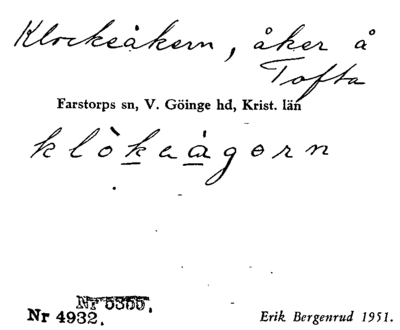 Klockeåkern, åker å
Tofta
Farstorps sn, V. Göinge hd, Krist. län
klòkaågorn
Nr 5355.
Nr 4932.
Erik Bergenrud 1951.